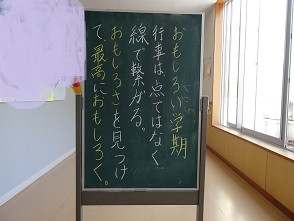 おもしろい学期
行事は、点ではなく、
線で繋がる。
おもしろさを見つけ
て、最高におもしろく。